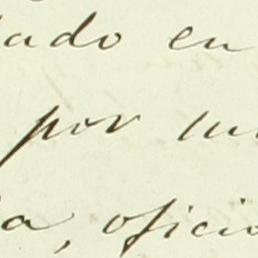 lado en
por un
a, oficio